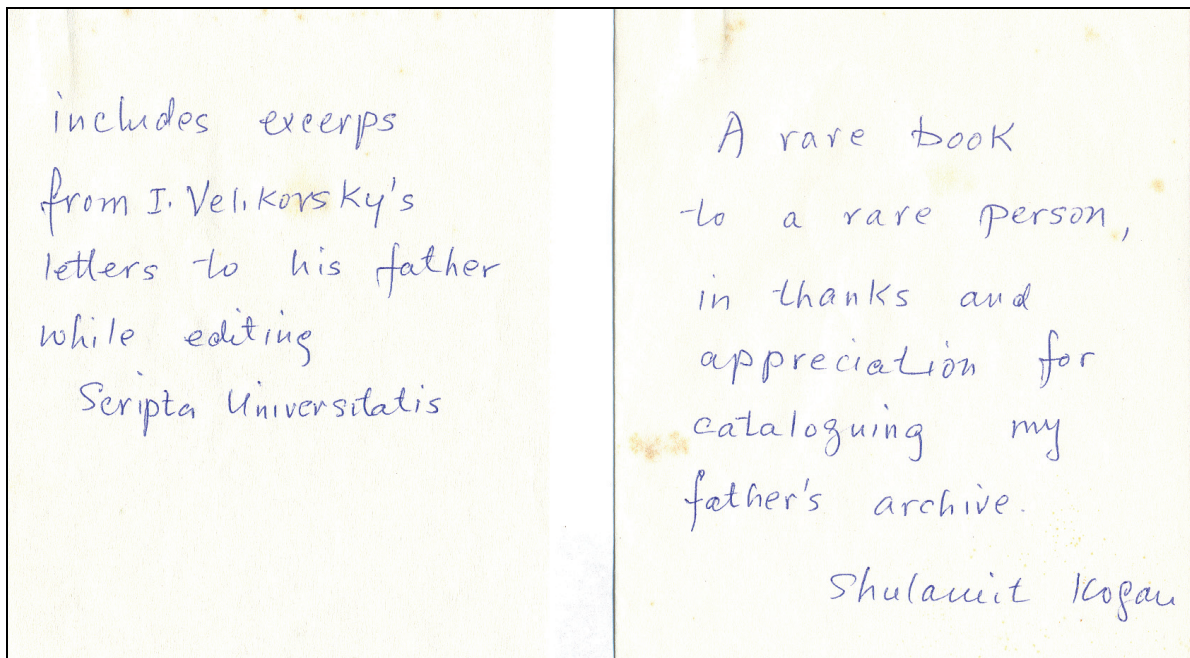 includes excerps
from I. Velikovsky's
letters to his father
while editing
Scripta Universitatis
A rare book
to a rare person,
in thanks and
appreciation for
cataloguing my
father's archive.
Shulamit Kogan